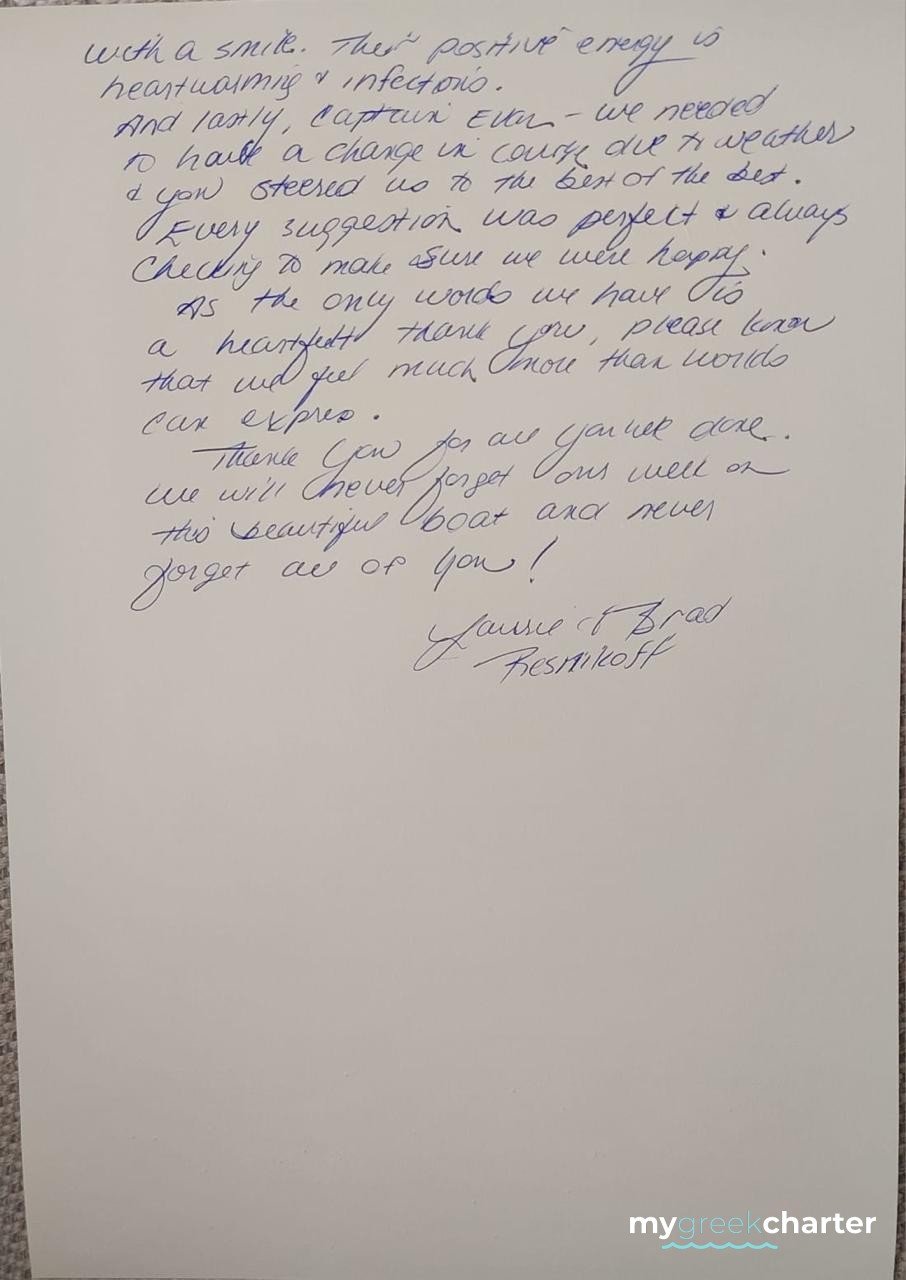 with a smile. Their positive energy is
heartwarming & infectious.
And lastly, Captain Evan - we needed
to have a change in course due to weather
& you steered us to the best of the best.
Every suggestion was perfect & always
checking to make sure we were happy.
As the only words we have is
a heartfelt thank you, please know
that we feel much more than words
can express.
Thank you for all you've done.
We will never forget our week on
this beautiful boat and never
forget all of you!
& Brad
Resnikoff
mygreekcharter